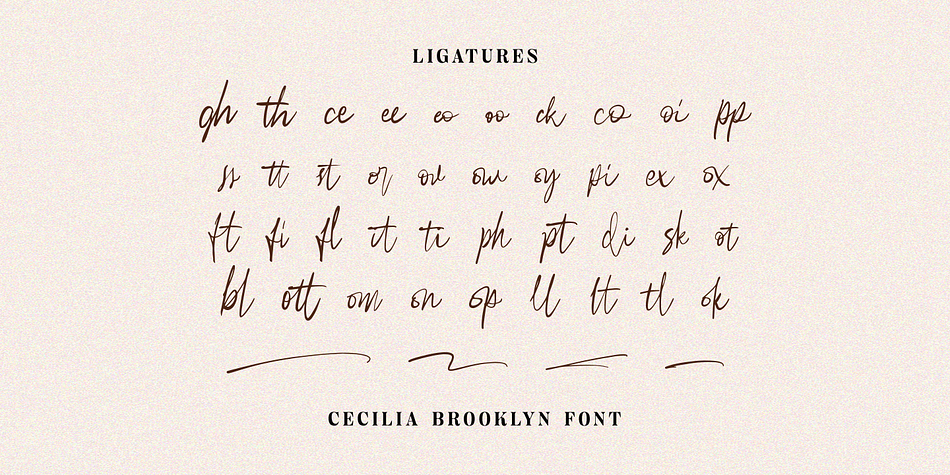 LIGATURES
gh th ce ee eo oo ck co oi pp
ss tt st or ov ow oy pi ex ox
ft fi fl it ti ph pt di sk ot
bl ott om on op ll lt tl ok
CECILIA BROOKLYN FONT